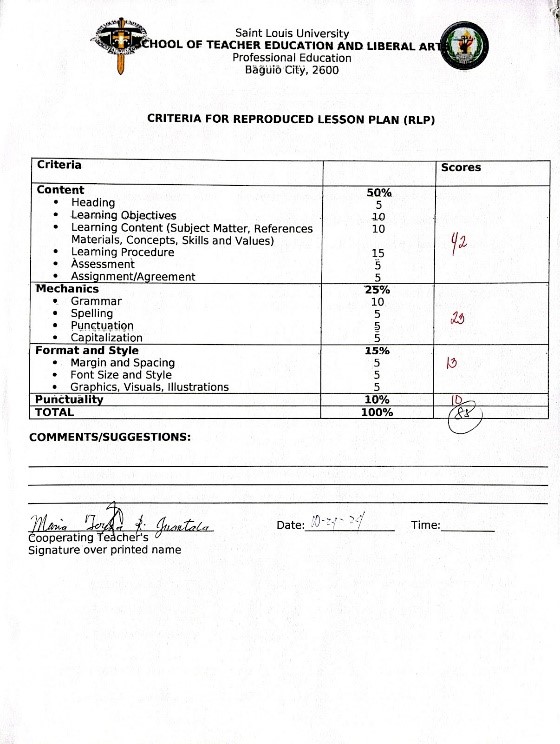 Saint Louis University
SCHOOL OF TEACHER EDUCATION AND LIBERAL ARTS
Professional Education
Baguio City, 2600
CRITERIA FOR REPRODUCED LESSON PLAN (RLP)
Criteria Scores
Content 50%
• Heading 5
• Learning Objectives 10
• Learning Content (Subject Matter, References 10
Materials, Concepts, Skills and Values) 42
• Learning Procedure 15
• Assessment 5
• Assignment/Agreement 5
Mechanics 25%
• Grammar 10
• Spelling 5 23
• Punctuation 5
• Capitalization 5
Format and Style 15%
• Margin and Spacing 5 13
• Font Size and Style 5
• Graphics, Visuals, Illustrations 5
Punctuality 10% 10
TOTAL 100% 88
COMMENTS/SUGGESTIONS:
Maria
Cooperating Teacher's Date: Time:
Signature over printed name